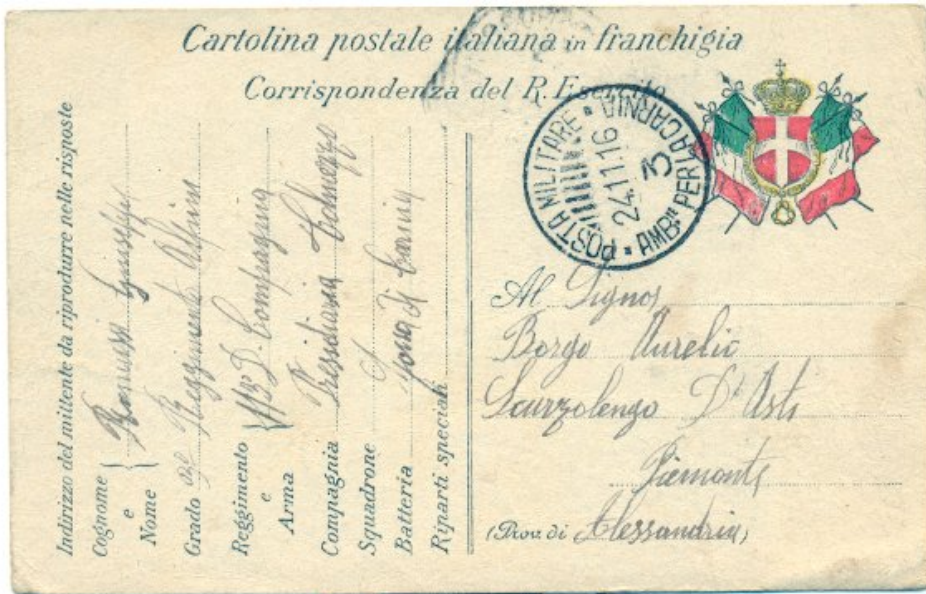 Cartolina postale italiana in franchigia
Corrispondenza del R. Esercito
POSTA MILITARE
24.11.16
3
AMB.TE PER LA CARNIA
Indirizzo del mittente da riprodurre nelle risposte
Cognome e Nome { Giuseppe
Grado Reggimento Alpini
Reggimento e Arma { Compagnia
Compagnia Presidiaria Tolmezzo
Squadrone
Batteria Zona di Carnia
Riparti speciali
Al Signor
Borgo Aurelio
Scurzolengo D'Asti
Piemonte
(Prov. di Alessandria)